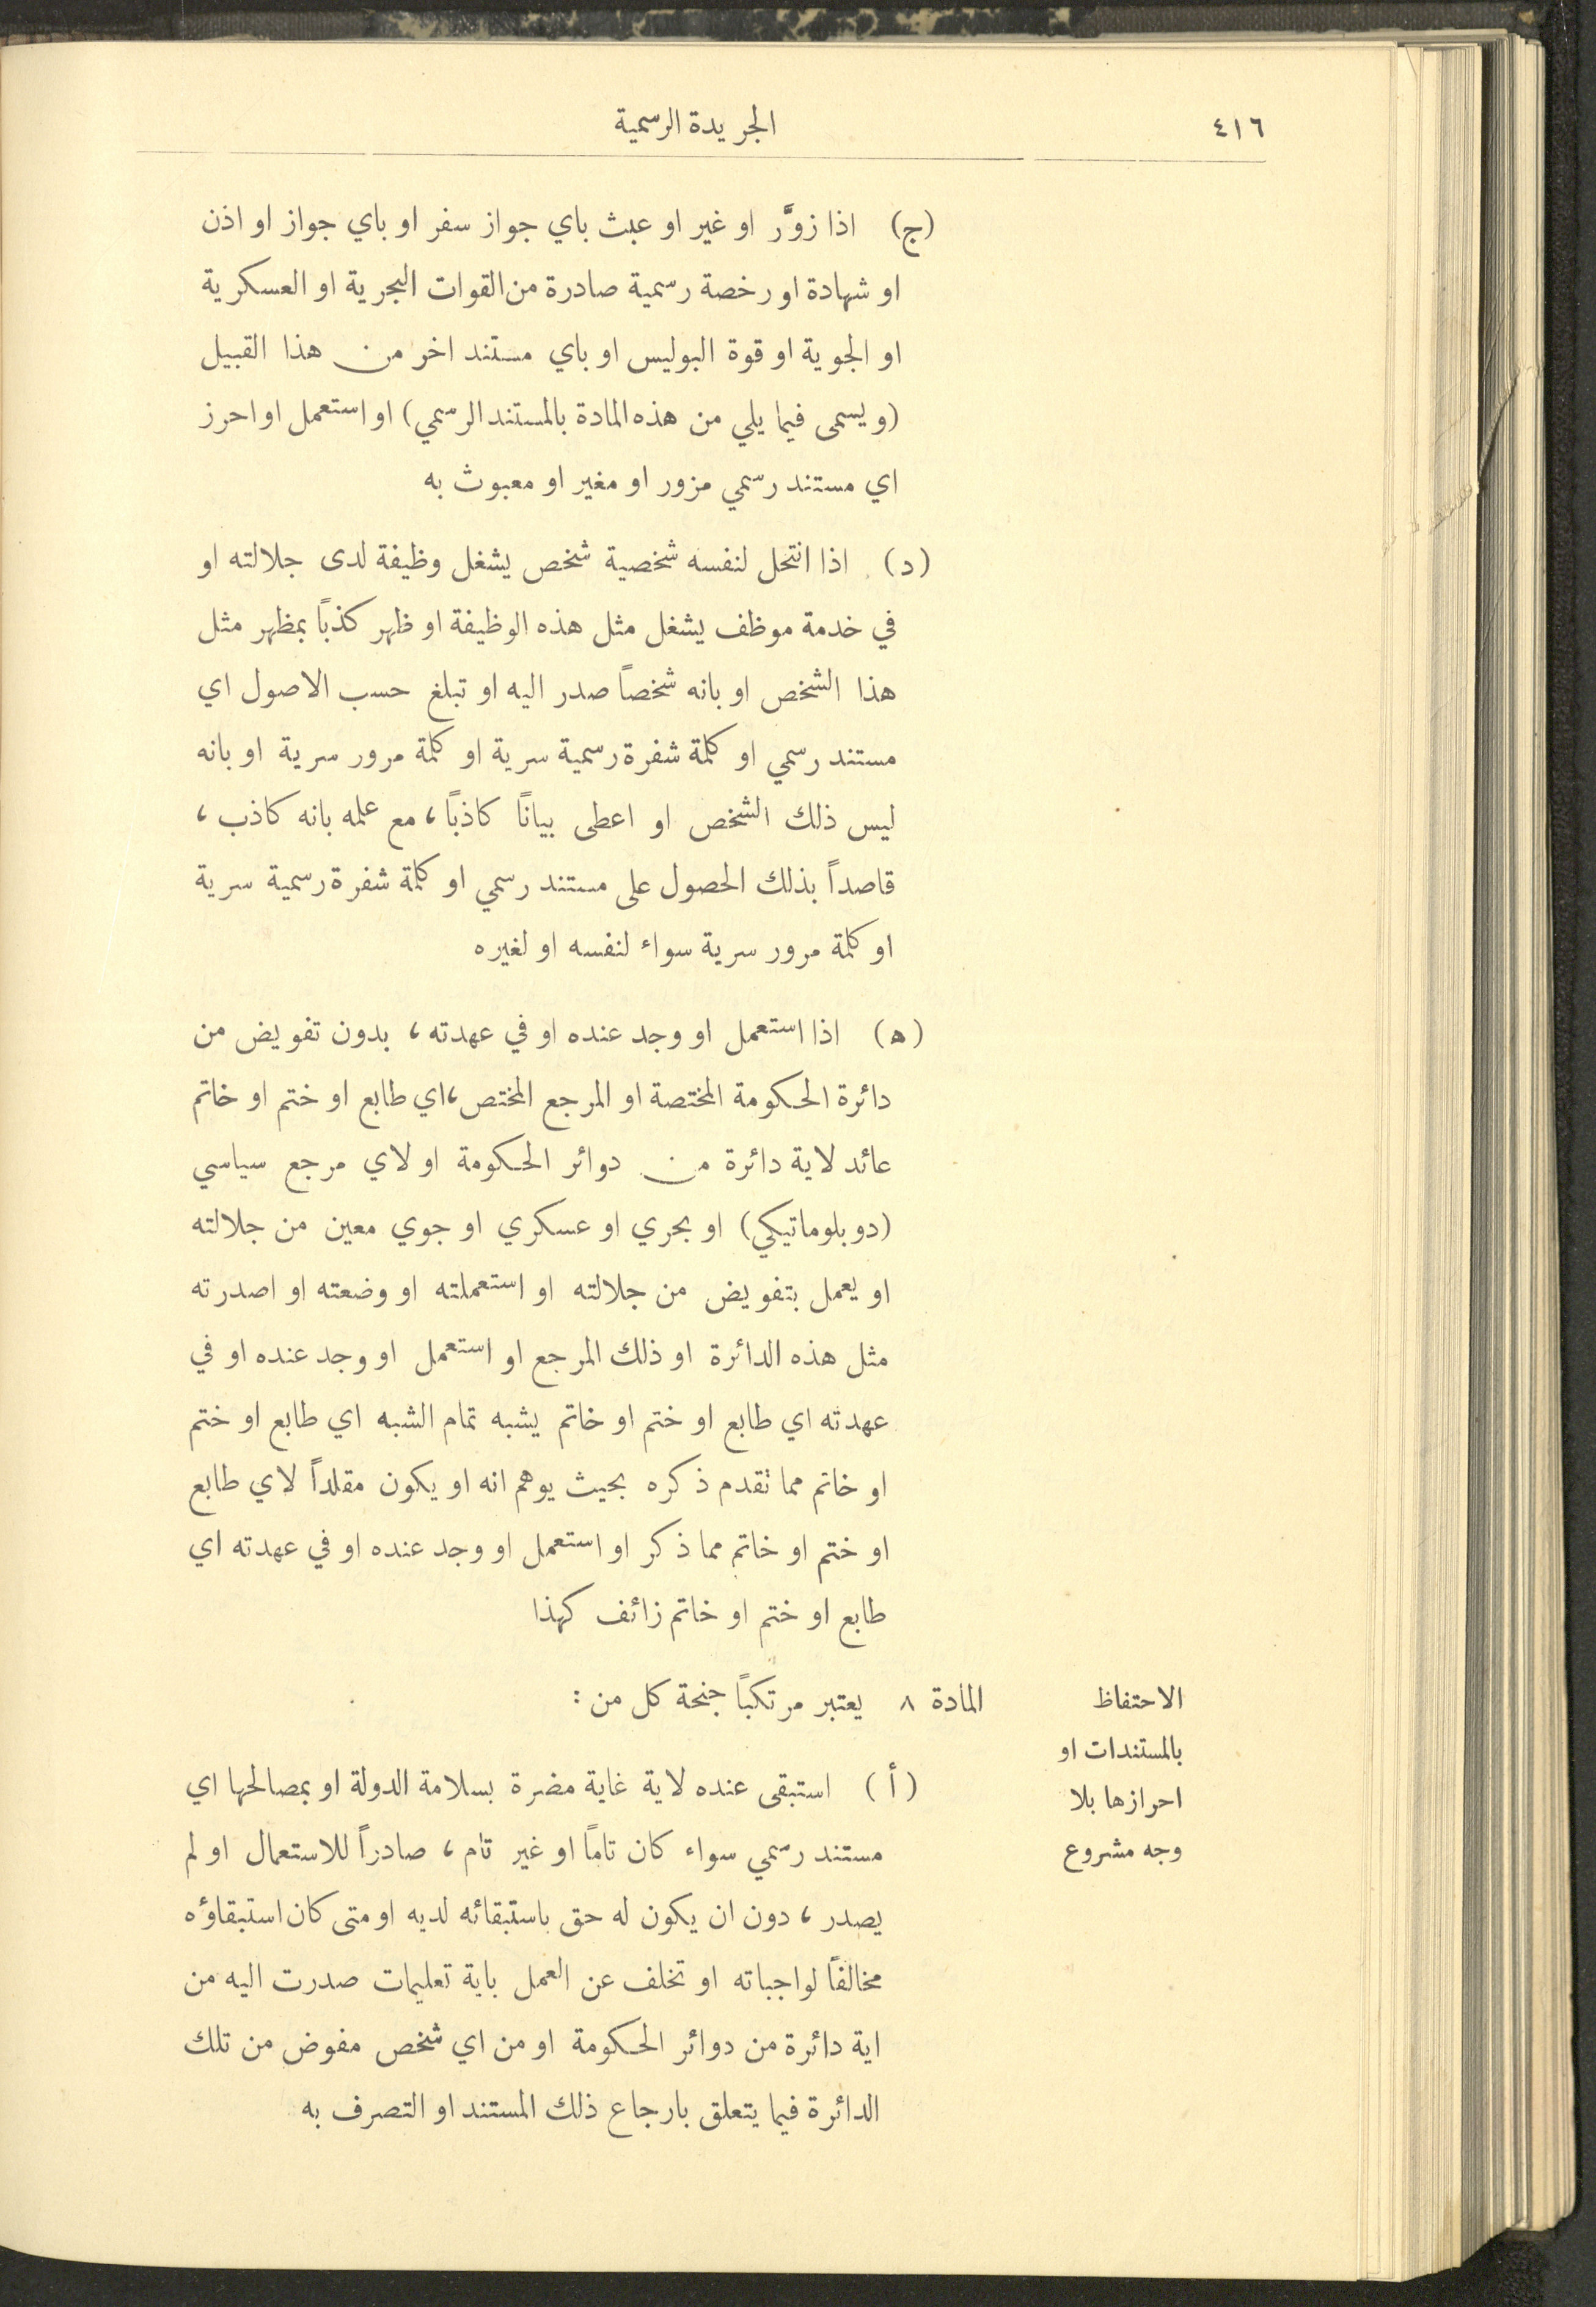 ٤١٦
الجريدة الرسمية
(ج) اذا زوَّر او غير او عبث باي جواز سفر او باي جواز او اذن
او شهادة او رخصة رسمية صادرة من القوات البحرية او العسكرية
او الجوية او قوة البوليس او باي مستند اخر من هذا القبيل
(ويسمى فيما يلي من هذه المادة بالمستند الرسمي) او استعمل او احرز
اي مستند رسمي مزور او مغير او معبوث به
(د) اذا انتحل لنفسه شخصية شخص يشغل وظيفة لدى جلالته او
في خدمة موظف يشغل مثل هذه الوظيفة او ظهر كذباً بمظهر مثل
هذا الشخص او بانه شخصاً صدر اليه او تبلغ حسب الاصول اي
مستند رسمي او كلمة شفرة رسمية سرية او كلمة مرور سرية او بانه
ليس ذلك الشخص او اعطى بياناً كاذباً، مع علمه بانه كاذب،
قاصداً بذلك الحصول على مستند رسمي او كلمة شفرة رسمية سرية
او كلمة مرور سرية سواء لنفسه او لغيره
(ه) اذا استعمل او وجد عنده او في عهدته، بدون تفويض من
دائرة الحكومة المختصة او المرجع المختص، اي طابع او ختم او خاتم
عائد لاية دائرة من دوائر الحكومة او لاي مرجع سياسي
(دوبلوماتيكي) او بحري او عسكري او جوي معين من جلالته
او يعمل بتفويض من جلالته او استعملته او وضعته او اصدرته
مثل هذه الدائرة او ذلك المرجع او استعمل او وجد عنده او في
عهدته اي طابع او ختم او خاتم يشبه تمام الشبه اي طابع او ختم
او خاتم مما تقدم ذكره بحيث يوهم انه او يكون مقلداً لاي طابع
او ختم او خاتم مما ذكر او استعمل او وجد عنده او في عهدته اي
طابع او ختم او خاتم زائف كهذا
الاحتفاظ
بالمستندات او
احرازها بلا
وجه مشروع
المادة ٨ يعتبر مرتكباً جنحة كل من :
(أ) استبقى عنده لاية غاية مضرة بسلامة الدولة او بمصالحها اي
مستند رسمي سواء كان تاماً او غير تام، صادراً للاستعمال او لم
يصدر، دون ان يكون له حق باستبقائه لديه او متى كان استبقاؤه
مخالفاً لواجباته او تخلف عن العمل باية تعليمات صدرت اليه من
اية دائرة من دوائر الحكومة او من اي شخص مفوض من تلك
الدائرة فيما يتعلق بارجاع ذلك المستند او التصرف به